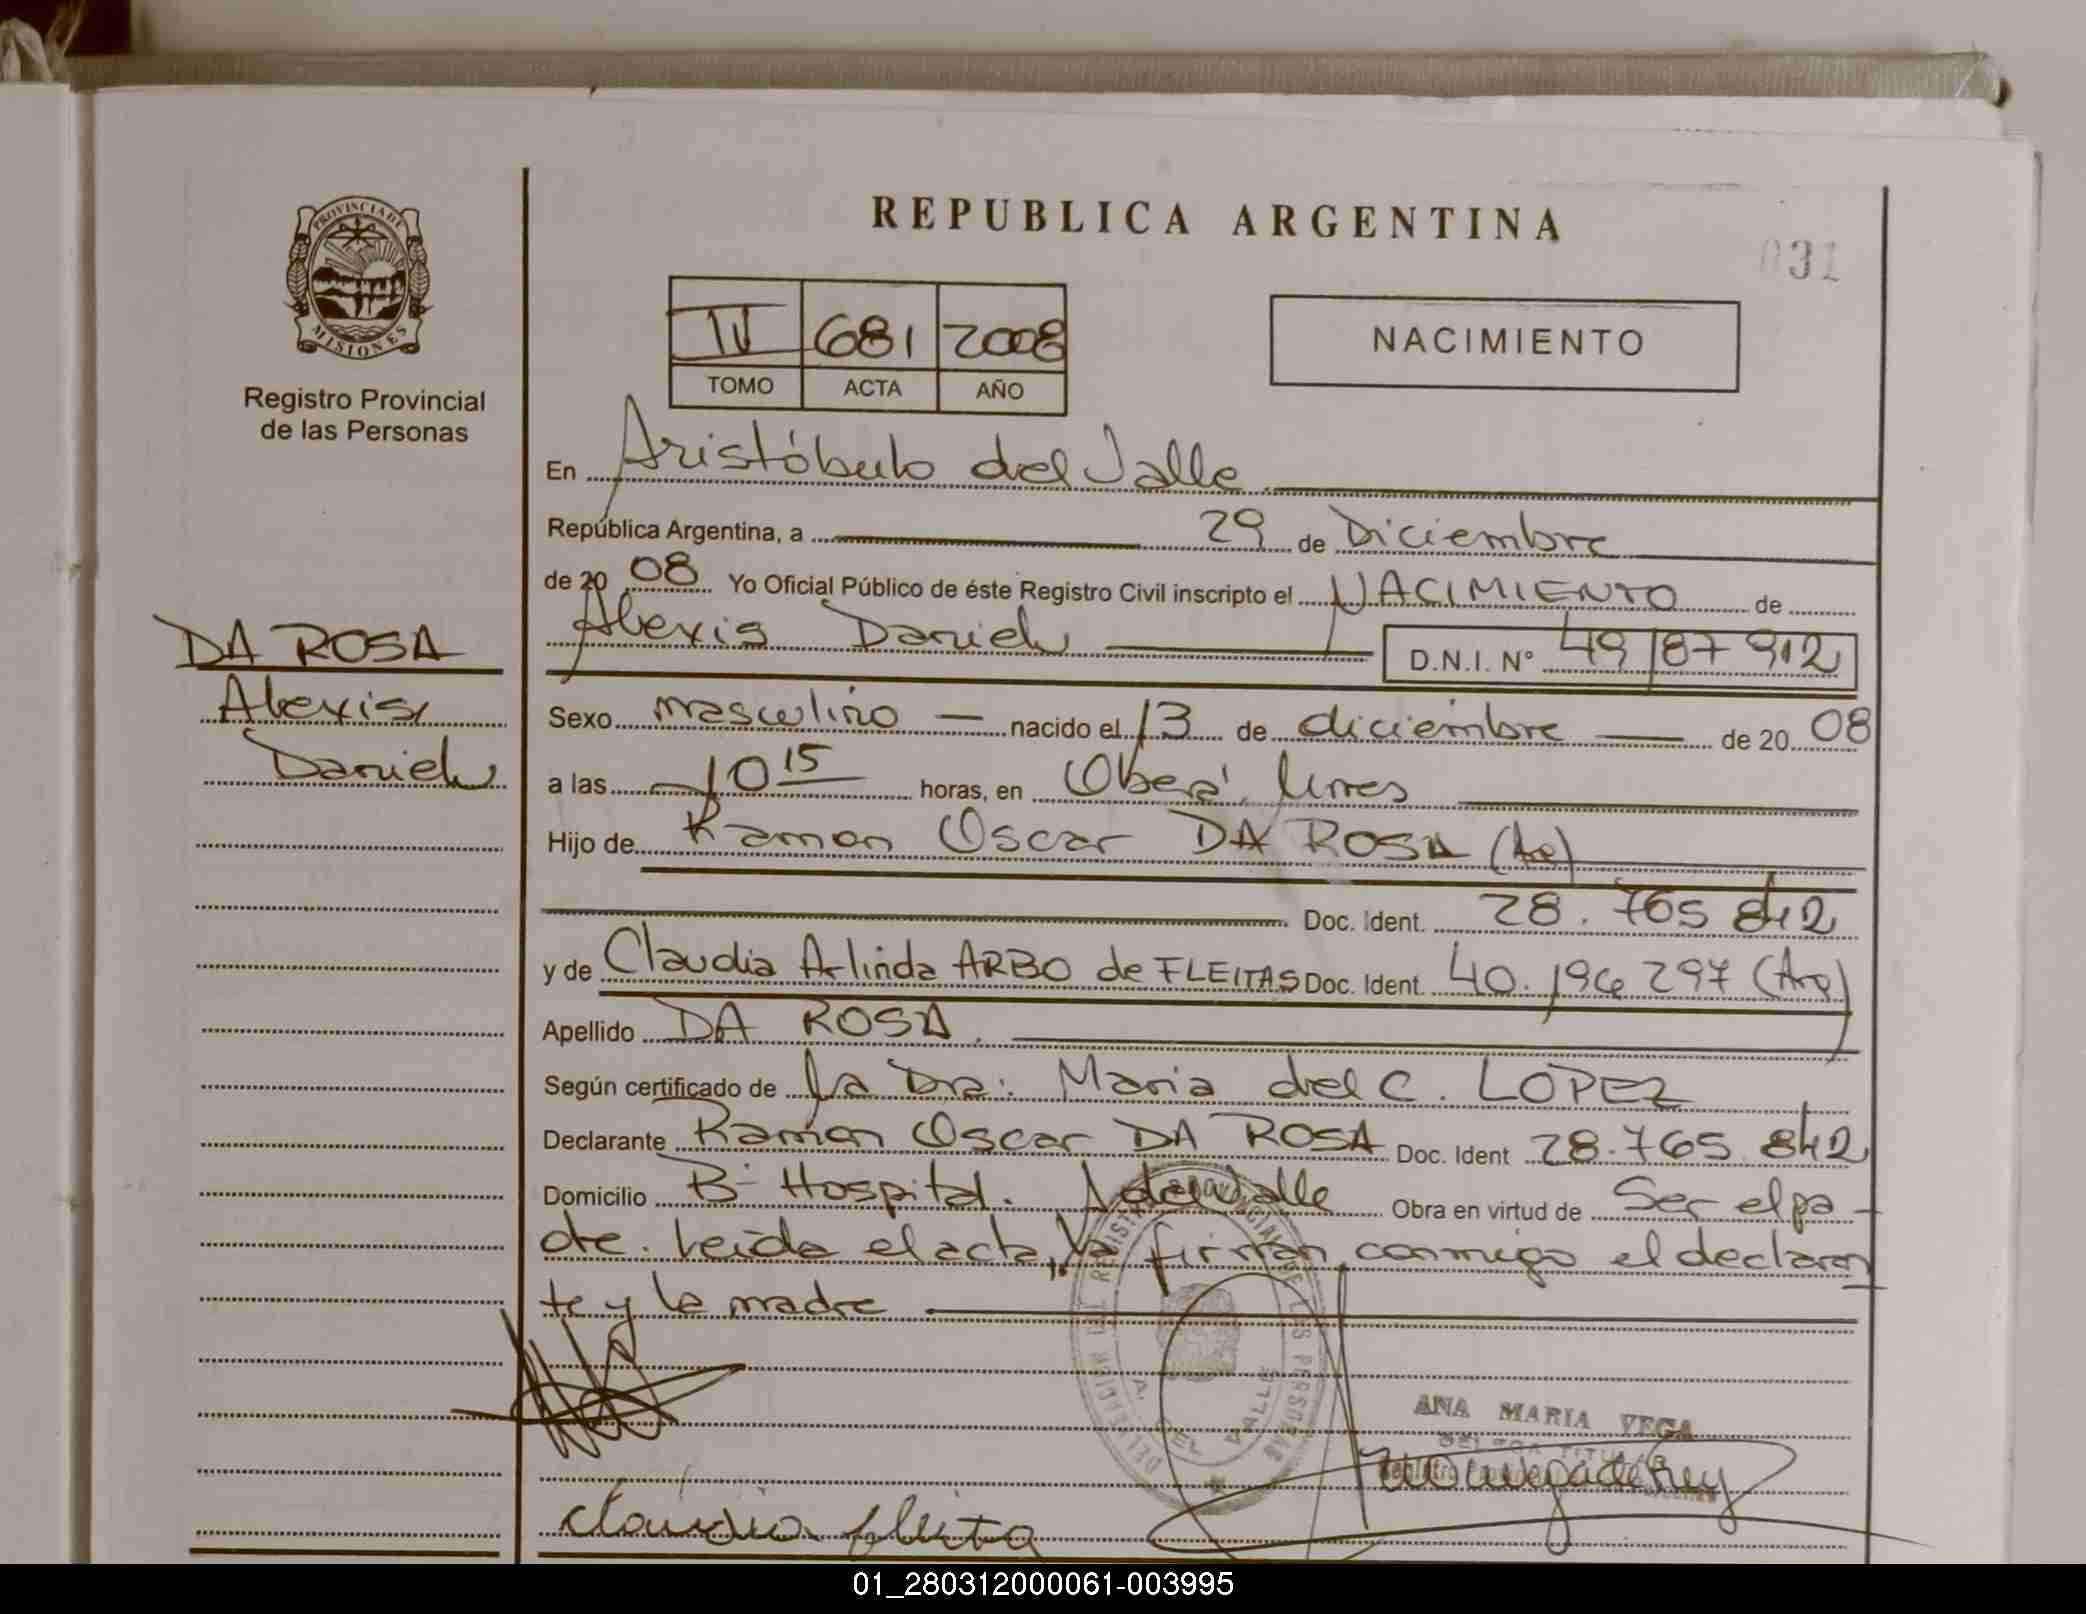 REPUBLICA ARGENTINA
031
PROVINCIA DE
MISIONES
Registro Provincial
de las Personas
IV 681 2008
TOMO ACTA AÑO
NACIMIENTO
En Aristóbulo del Valle
República Argentina, a 29 de Diciembre
de 20 08 Yo Oficial Público de éste Registro Civil inscripto el NACIMIENTO de
Alexis Daniel D.N.I. N° 49187912
DA ROSA
Alexis
Daniel
Sexo masculino nacido el 13 de diciembre de 20 08
a las 10 15 horas, en Oberá, Mnes
Hijo de Ramon Oscar DA ROSA (Arg)
Doc. Ident. 28.765.842
y de Claudia Arlinda ARBO de FLEITAS Doc. Ident. 40.196.297 (Arg)
Apellido DA ROSA.
Según certificado de la Dra. Maria del C. LOPEZ
Declarante Ramón Oscar DA ROSA Doc. Ident 28.765.842
Domicilio B- Hospital. A. del Valle Obra en virtud de Ser el pa-
dre. Leida el acta, la firman conmigo el declaran
te y la madre
ANA MARIA VEGA
Claudia fleita
01_280312000061-003995